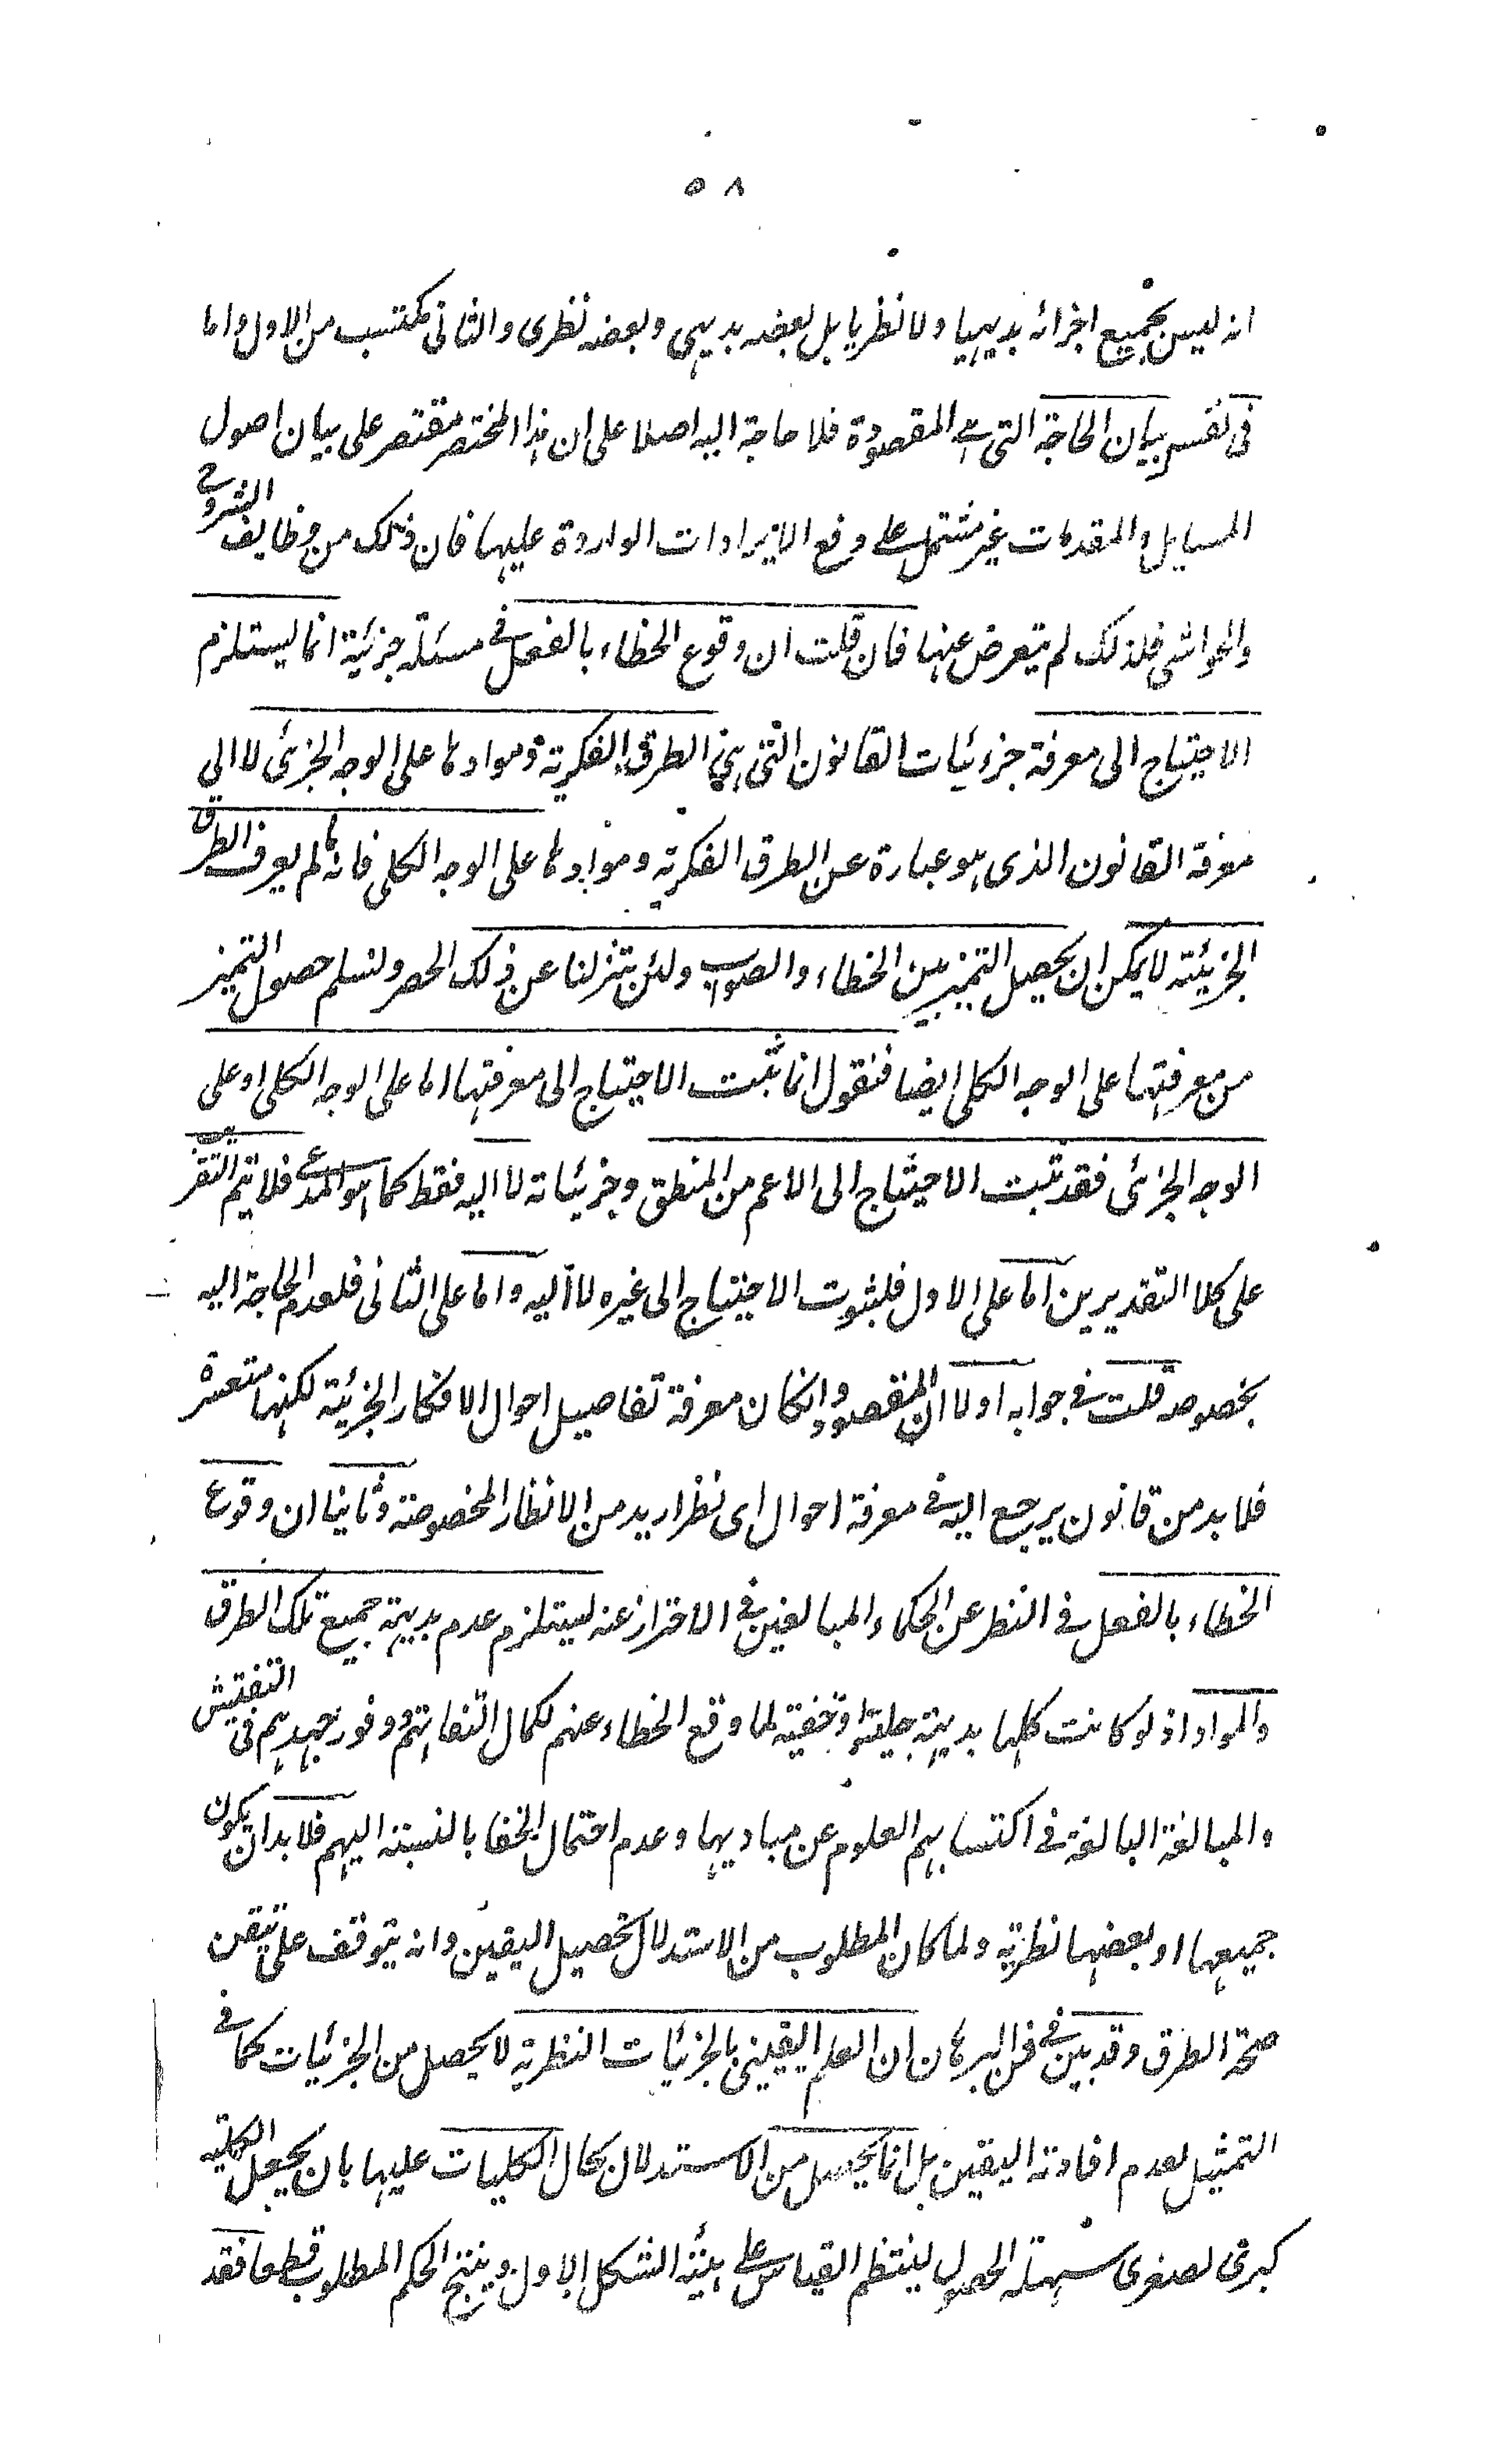 ٥٨
انه ليس بجميع اجزائه بديهيا ولا نظريا بل بعضه بديهى وبعضه نظرى والثانى مكتسب من الاول واما
فى نفس بيان الحاجة التى هى المقصودة فلا حاجة اليه اصلا على ان هذا المختصر مقتصر على بيان اصول
المسايل والمقدمات غير مشتمل على دفع الايرادات الواردة عليها فان ذلك من وظايف الشروح
والحواشى فلذلك لم يتعرض عنها فان قلت ان وقوع الخطاء بالفعل فى مسئلة جزئية انما يستلزم
الاحتياج الى معرفة جزئيات القانون التى هى الطرق الفكرية وموادها على الوجه الجزئى لا الى
معرفة القانون الذى هو عبارة عن الطرق الفكرية وموادها على الوجه الكلى فانه ما لم يعرف الطرق
الجزئية لا يمكن ان يحصل التميز بين الخطاء والصواب ولئن تنزلنا عن ذلك الحصر ولنسلم حصول التميز
من معرفتها على الوجه الكلى ايضا فنقول انما ثبت الاحتياج الى معرفتها اما على الوجه الكلى او على
الوجه الجزئى فقد ثبت الاحتياج الى الاعم من المنطق وجزئياته لا اليه فقط كما هو المدعى فلا يتم التقريب
على كلا التقديرين اما على الاول فلثبوت الاحتياج الى غيره لا اليه واما على الثانى فلعدم الحاجة اليه
بخصوصه قلت فى جوابه اولا ان المقصود وانكان معرفة تفاصيل احوال الافكار الجزئية لكنها متعسرة
فلا بد من قانون يرجع اليه فى معرفة احوال اى نظر اريد من الانظار المخصوصة وثانيا ان وقوع
الخطاء بالفعل فى النظر عن الحكماء المبالغين فى الاحتراز عنه يستلزم عدم بديهية جميع تلك الطرق
والمواد اذ لو كانت كلها بديهية جلية او خفية لما وقع الخطاء عنهم لكمال التفاتهم ووفور جهدهم فى التفتيش
والمبالغة البالغة فى اكتسابهم العلوم عن مباديها وعدم احتمال الخفا بالنسبة اليهم فلا بد ان يكون
جميعها او بعضها نظرية ولما كان المطلوب من الاستدلال تحصيل اليقين وانه يتوقف على تيقن
صحة الطرق وقد بين فى فن البرهان ان العلم اليقينى بالجزئيات النظرية لا يحصل من الجزئيات كما فى
التمثيل لعدم افادته اليقين بل انما يحصل من الاستدلال بحال الكليات عليها بان يجعل الكلية
كبرى لصغرى سهلة الحصول لينتظم القياس على هيئة الشكل الاول وينتج الحكم المطلوب قطعا فقد